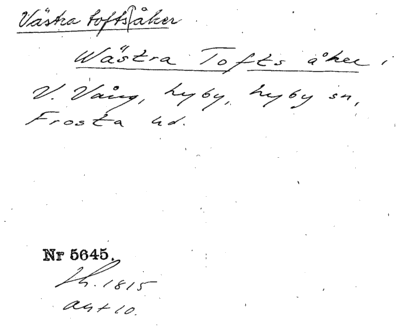 Västra tofts åker
Wästra Tofts åker i
V. Vång, Hyby, Hyby sn,
Frosta hd.
Nr 5645.
Sk. 1815
akt 10.